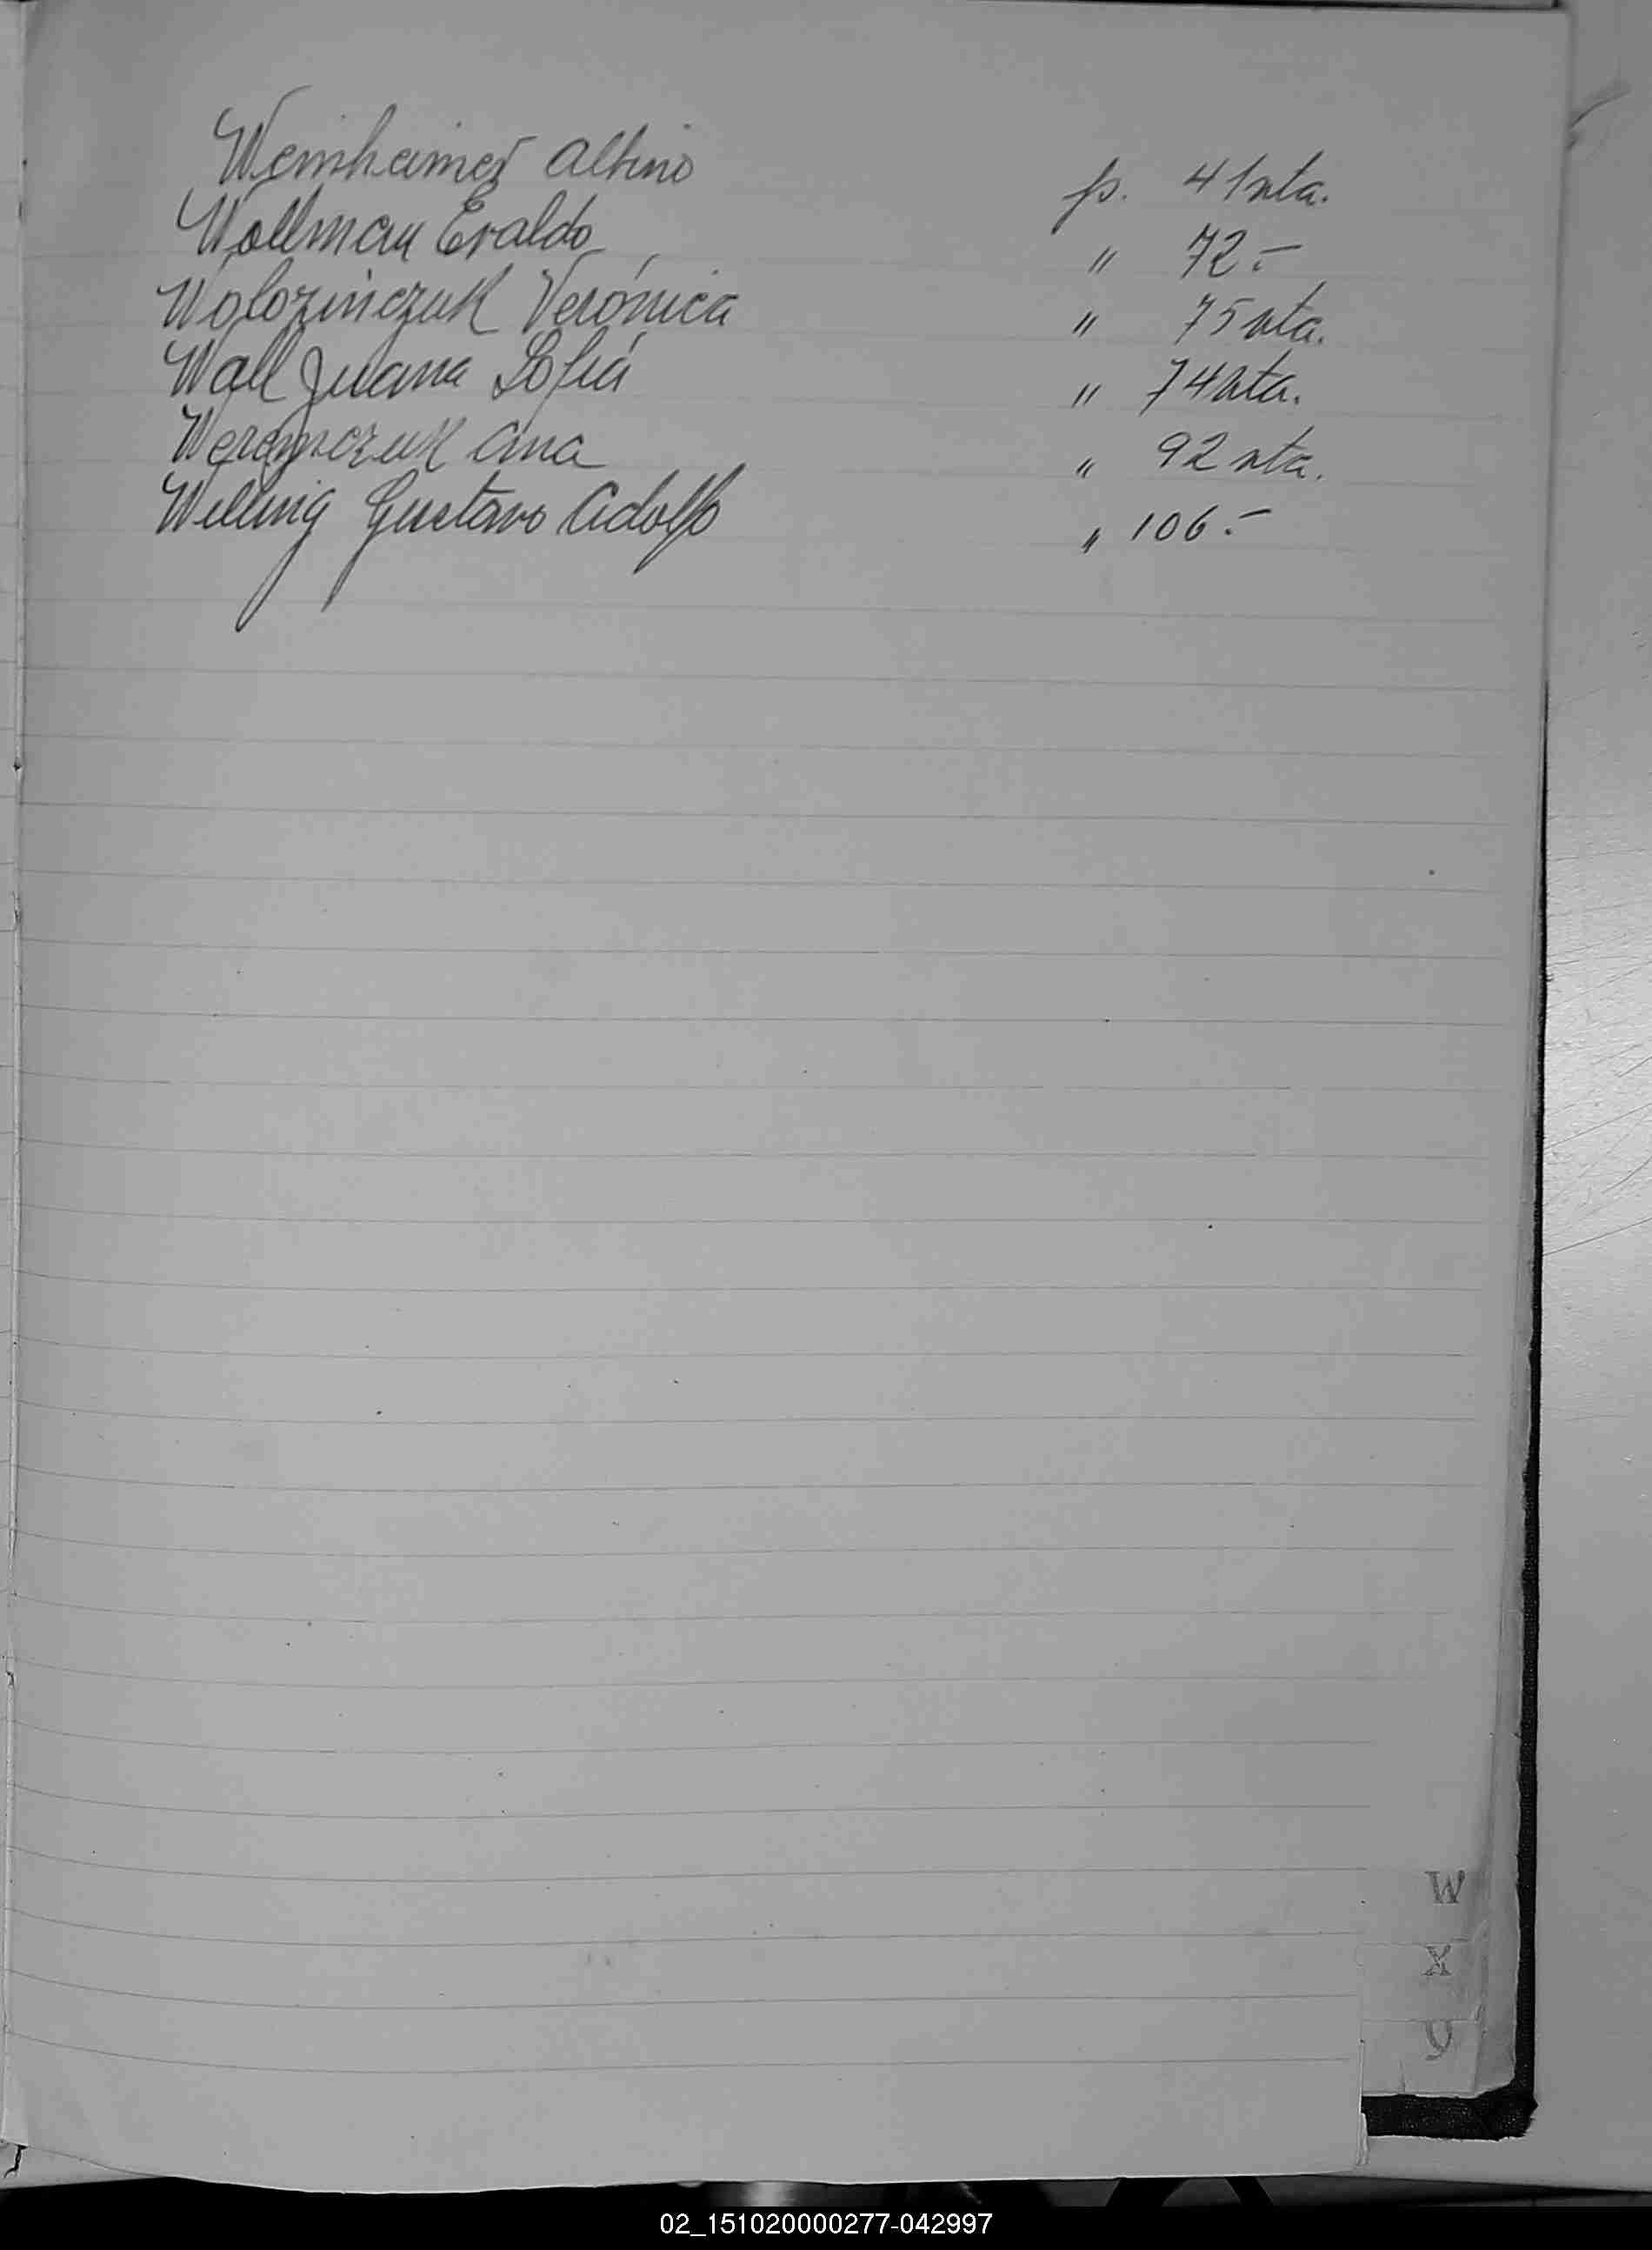 Weinheimer Albino fs. 41 vta.
Wollman Eraldo " 72.-
Wolozinczuk Verónica " 75 vta.
Wall Juana Sofía " 74 vta.
Ana " 92 vta.
Willing Gustavo Adolfo " 106.-
W
X
Y
02_151020000277-042997